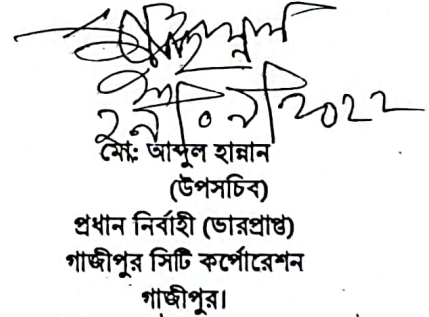 মো: আব্দুল হান্নান
(উপসচিব)
প্রধান নির্বাহী (ভারপ্রাপ্ত)
গাজীপুর সিটি কর্পোরেশন
গাজীপুর।